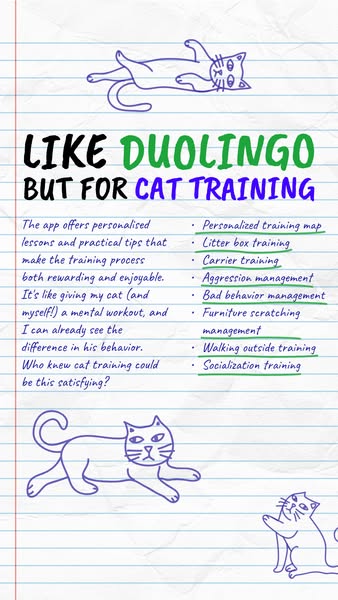 LIKE DUOLINGO
BUT FOR CAT TRAINING
The app offers personalised
lessons and practical tips that
make the training process
both rewarding and enjoyable.
It's like giving my cat (and
myself!) a mental workout, and
I can already see the
difference in his behavior.
Who knew cat training could
be this satisfying?
• Personalized training map
• Litter box training
• Carrier training
• Aggression management
• Bad behavior management
• Furniture scratching
management
• Walking outside training
• Socialization training